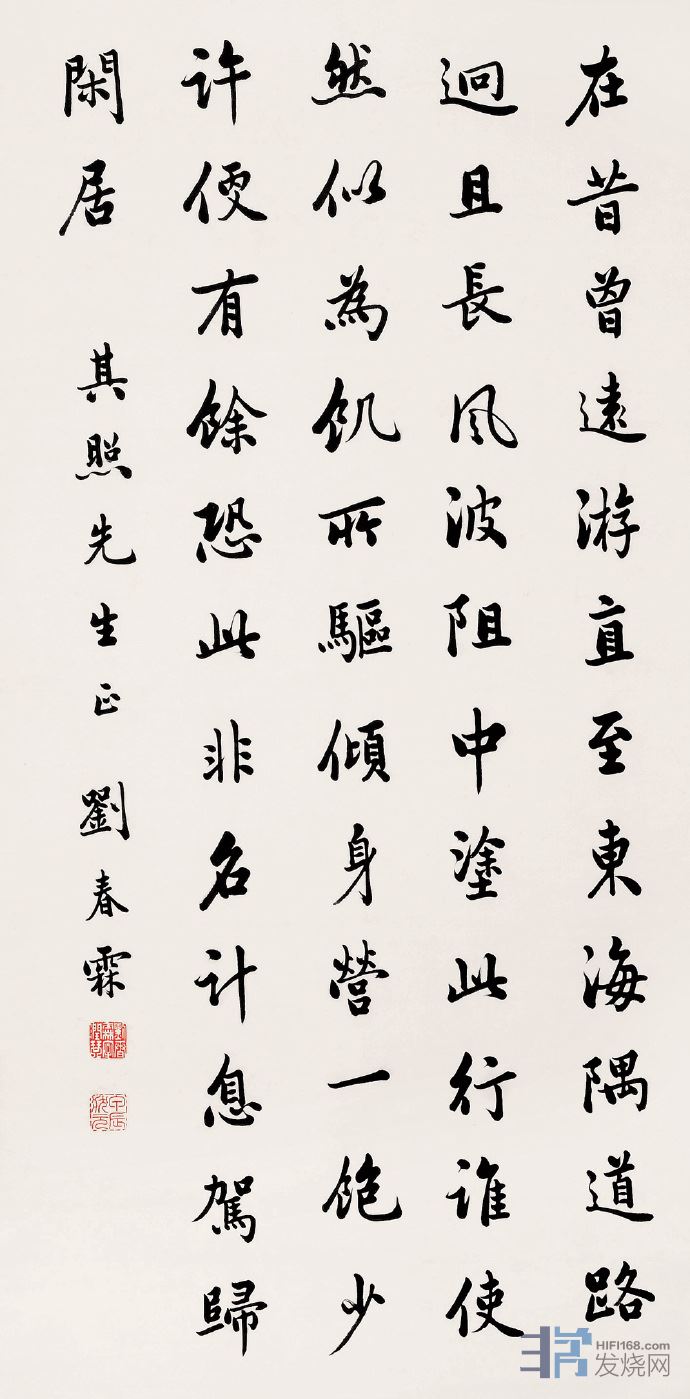 在昔曾遠游直至東海隅道路
迥且長風波阻中塗此行誰使
然似為飢所驅傾身營一飽少
許便有餘恐此非名計息駕歸
閑居
其照先生正 劉春霖
HIFI168.com
发烧网